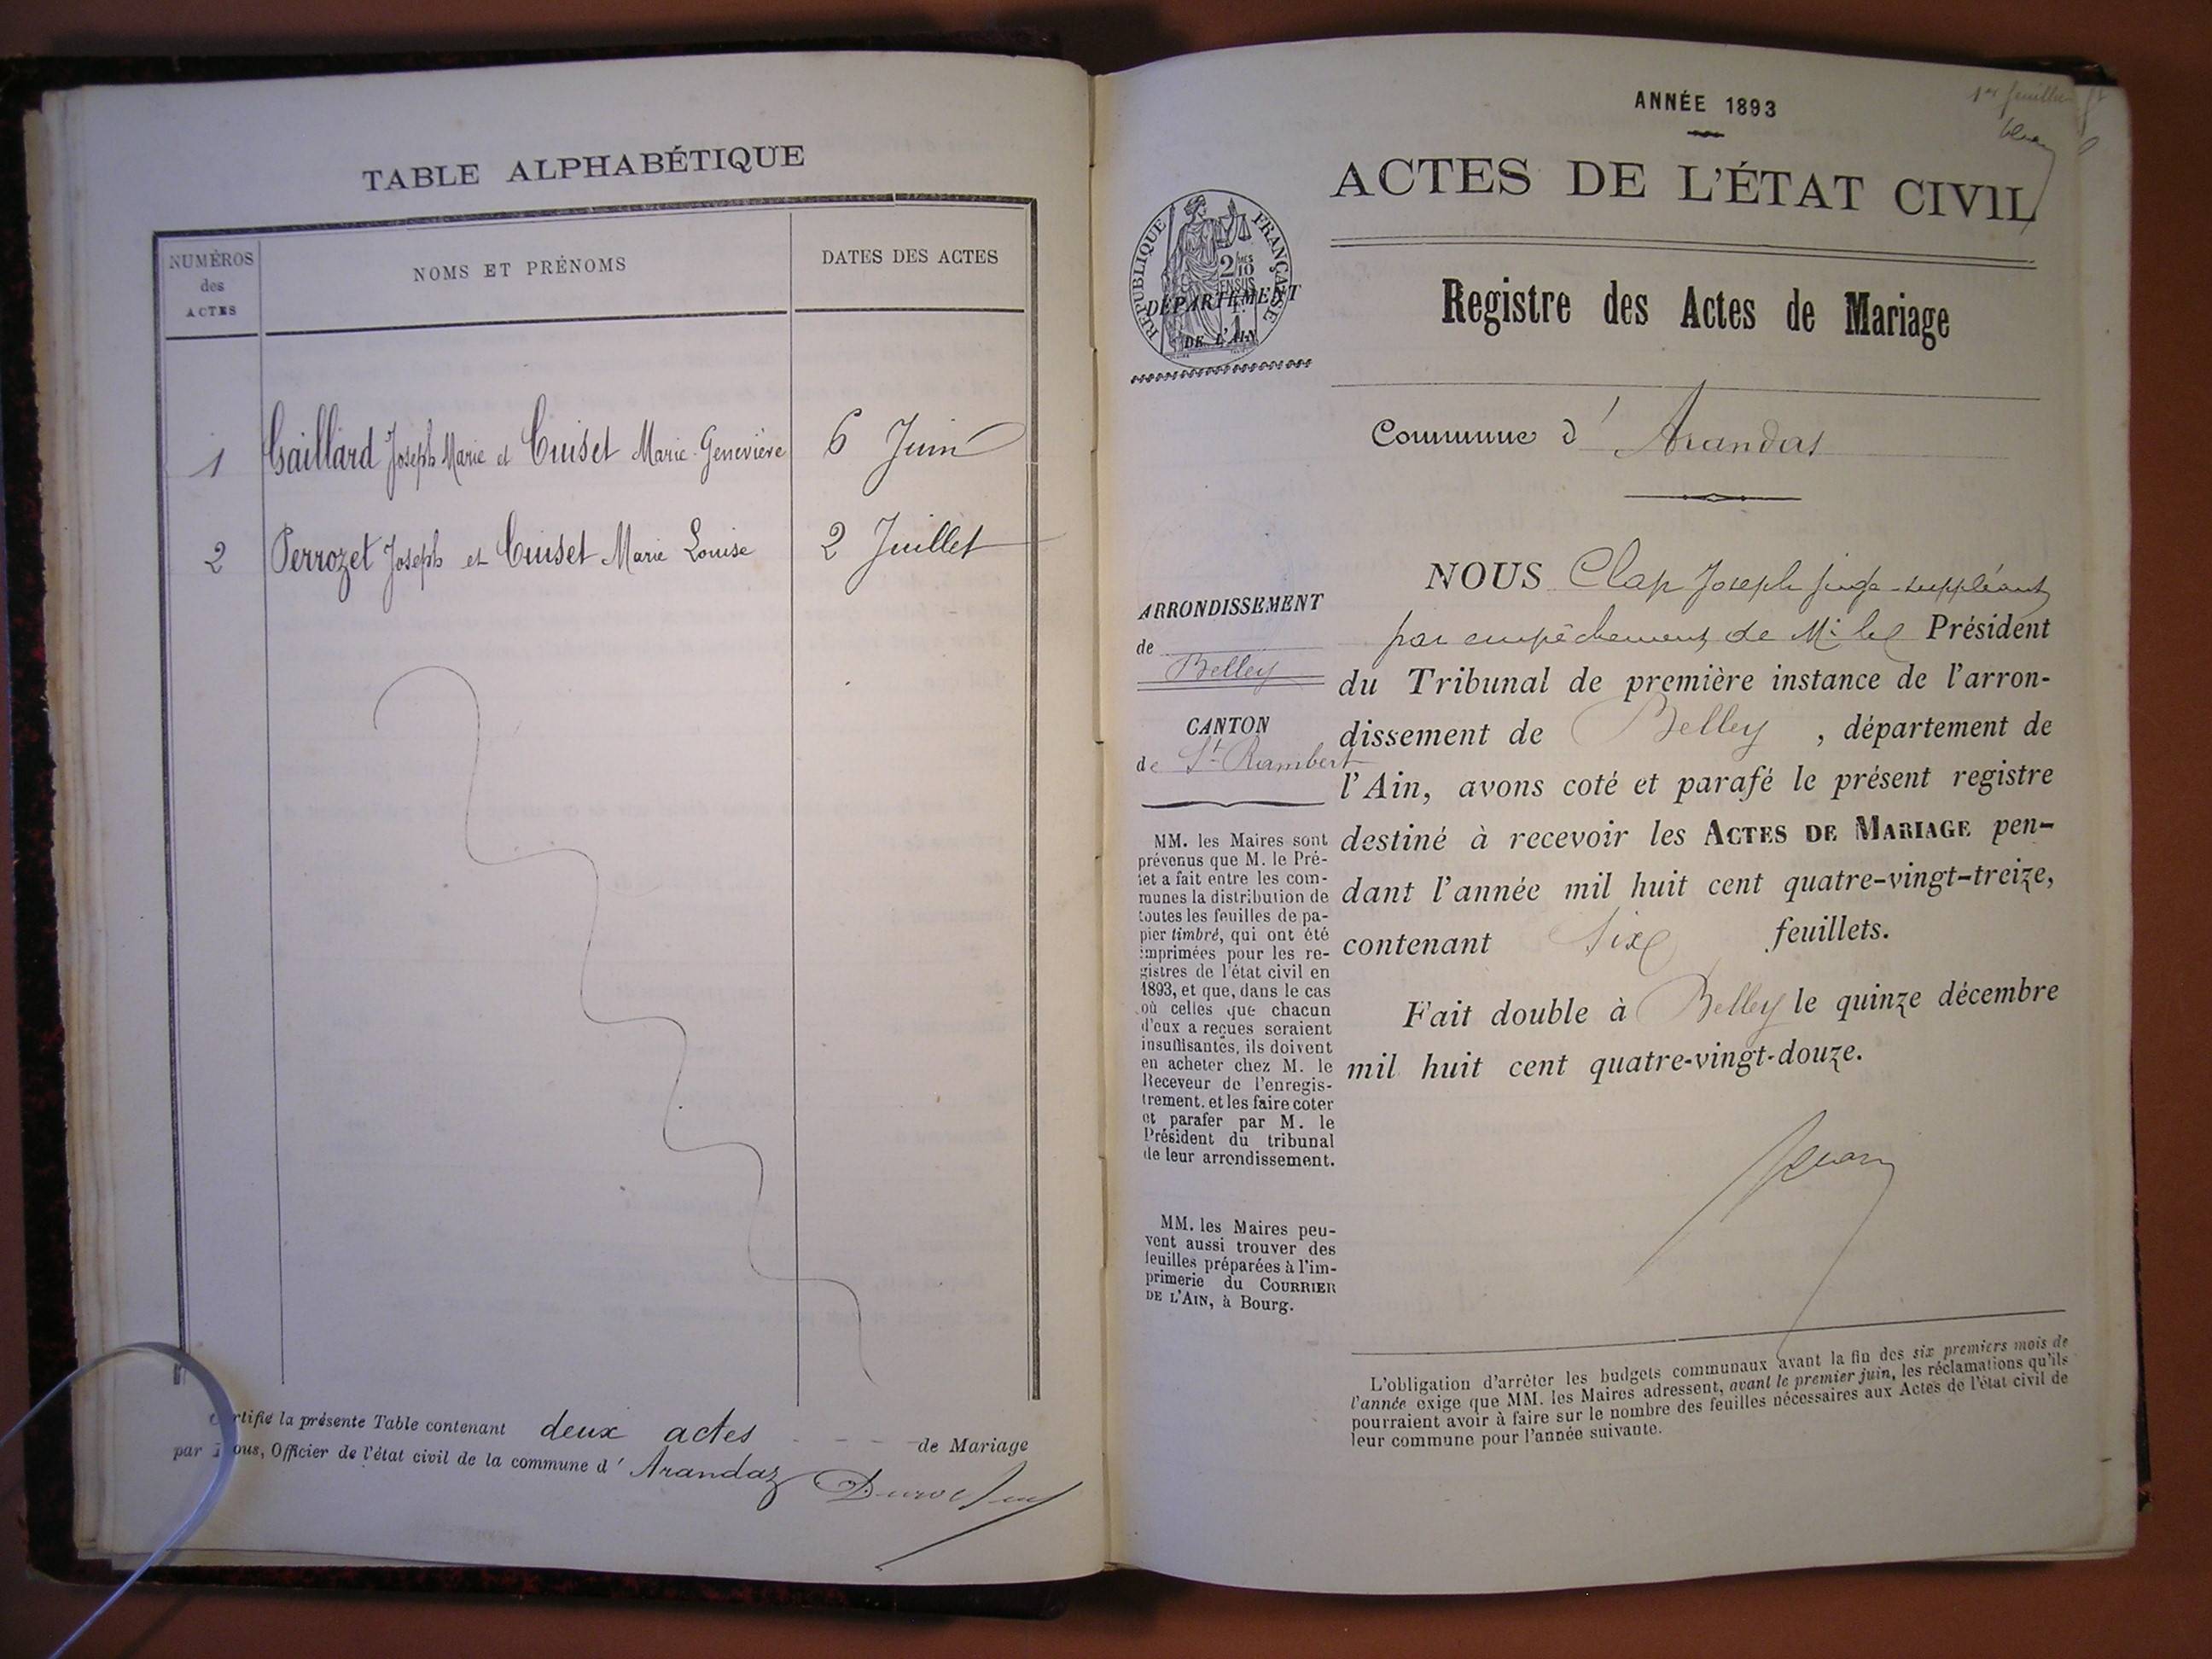 TABLE ALPHABÉTIQUE
NUMÉROS
des
ACTES
NOMS ET PRÉNOMS
DATES DES ACTES
1 Gaillard Joseph Marie et Cuiset Marie-Geneviève 6 Juin
2 Perrozet Joseph et Cuiset Marie Louise 2 Juillet
Certifié la présente Table contenant deux actes de Mariage
par Nous, Officier de l'état civil de la commune d' Arandaz
ANNÉE 1893
1er feuillet
ACTES DE L'ÉTAT CIVIL
RÉPUBLIQUE FRANÇAISE
DÉPARTEMENT
DE L'AIN
Registre des Actes de Mariage
Commune d' Arandas
ARRONDISSEMENT
de
Belley
CANTON
de St-Rambert
MM. les Maires sont
prévenus que M. le Pré-
fet a fait entre les com-
munes la distribution de
toutes les feuilles de pa-
pier timbré, qui ont été
imprimées pour les re-
gistres de l'état civil en
1893, et que, dans le cas
où celles que chacun
d'eux a reçues seraient
insuffisantes, ils doivent
en acheter chez M. le
Receveur de l'enregis-
trement, et les faire coter
et parafer par M. le
Président du tribunal
de leur arrondissement.
MM. les Maires peu-
vent aussi trouver des
feuilles préparées à l'im-
primerie du COURRIER
DE L'AIN, à Bourg.
NOUS Clap Joseph juge-suppléant
par empêchement de Mr le Président
du Tribunal de première instance de l'arron-
dissement de Belley, département de
l'Ain, avons coté et parafé le présent registre
destiné à recevoir les ACTES DE MARIAGE pen-
dant l'année mil huit cent quatre-vingt-treize,
contenant six feuillets.
Fait double à Belley le quinze décembre
mil huit cent quatre-vingt-douze.
L'obligation d'arrêter les budgets communaux avant la fin des six premiers mois de
l'année exige que MM. les Maires adressent, avant le premier juin, les réclamations qu'ils
pourraient avoir à faire sur le nombre des feuilles nécessaires aux Actes de l'état civil de
leur commune pour l'année suivante.